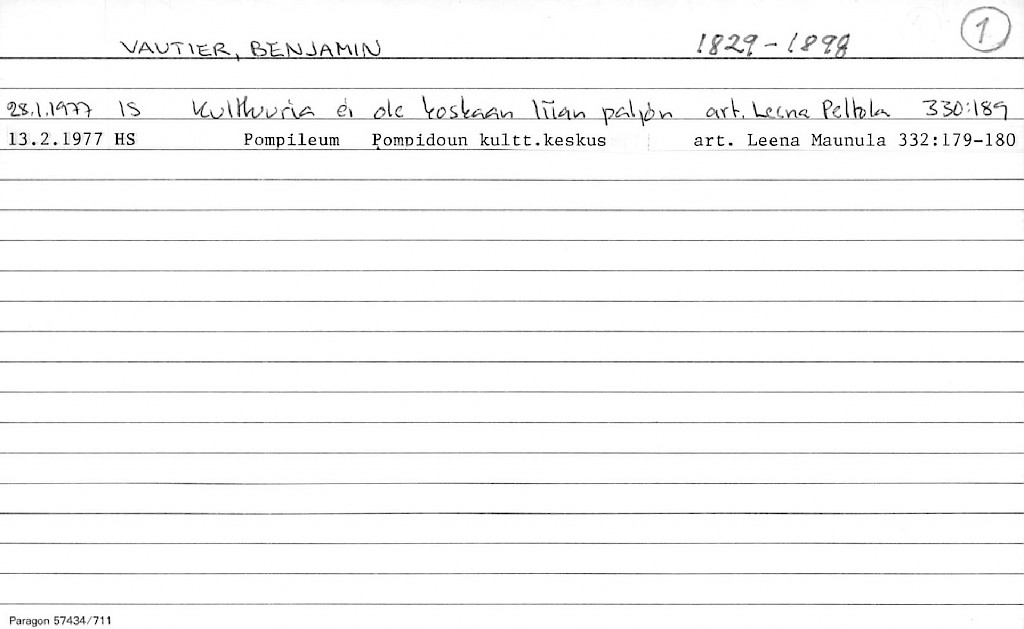 VAUTIER, BENJAMIN 1829-1898 1
28.1.1977 IS Kulttuuria ei ole koskaan liian paljon art. Leena Peltola 330:189
13.2.1977 HS Pompileum Pompidoun kultt.keskus art. Leena Maunula 332:179-180
Paragon 57434/711